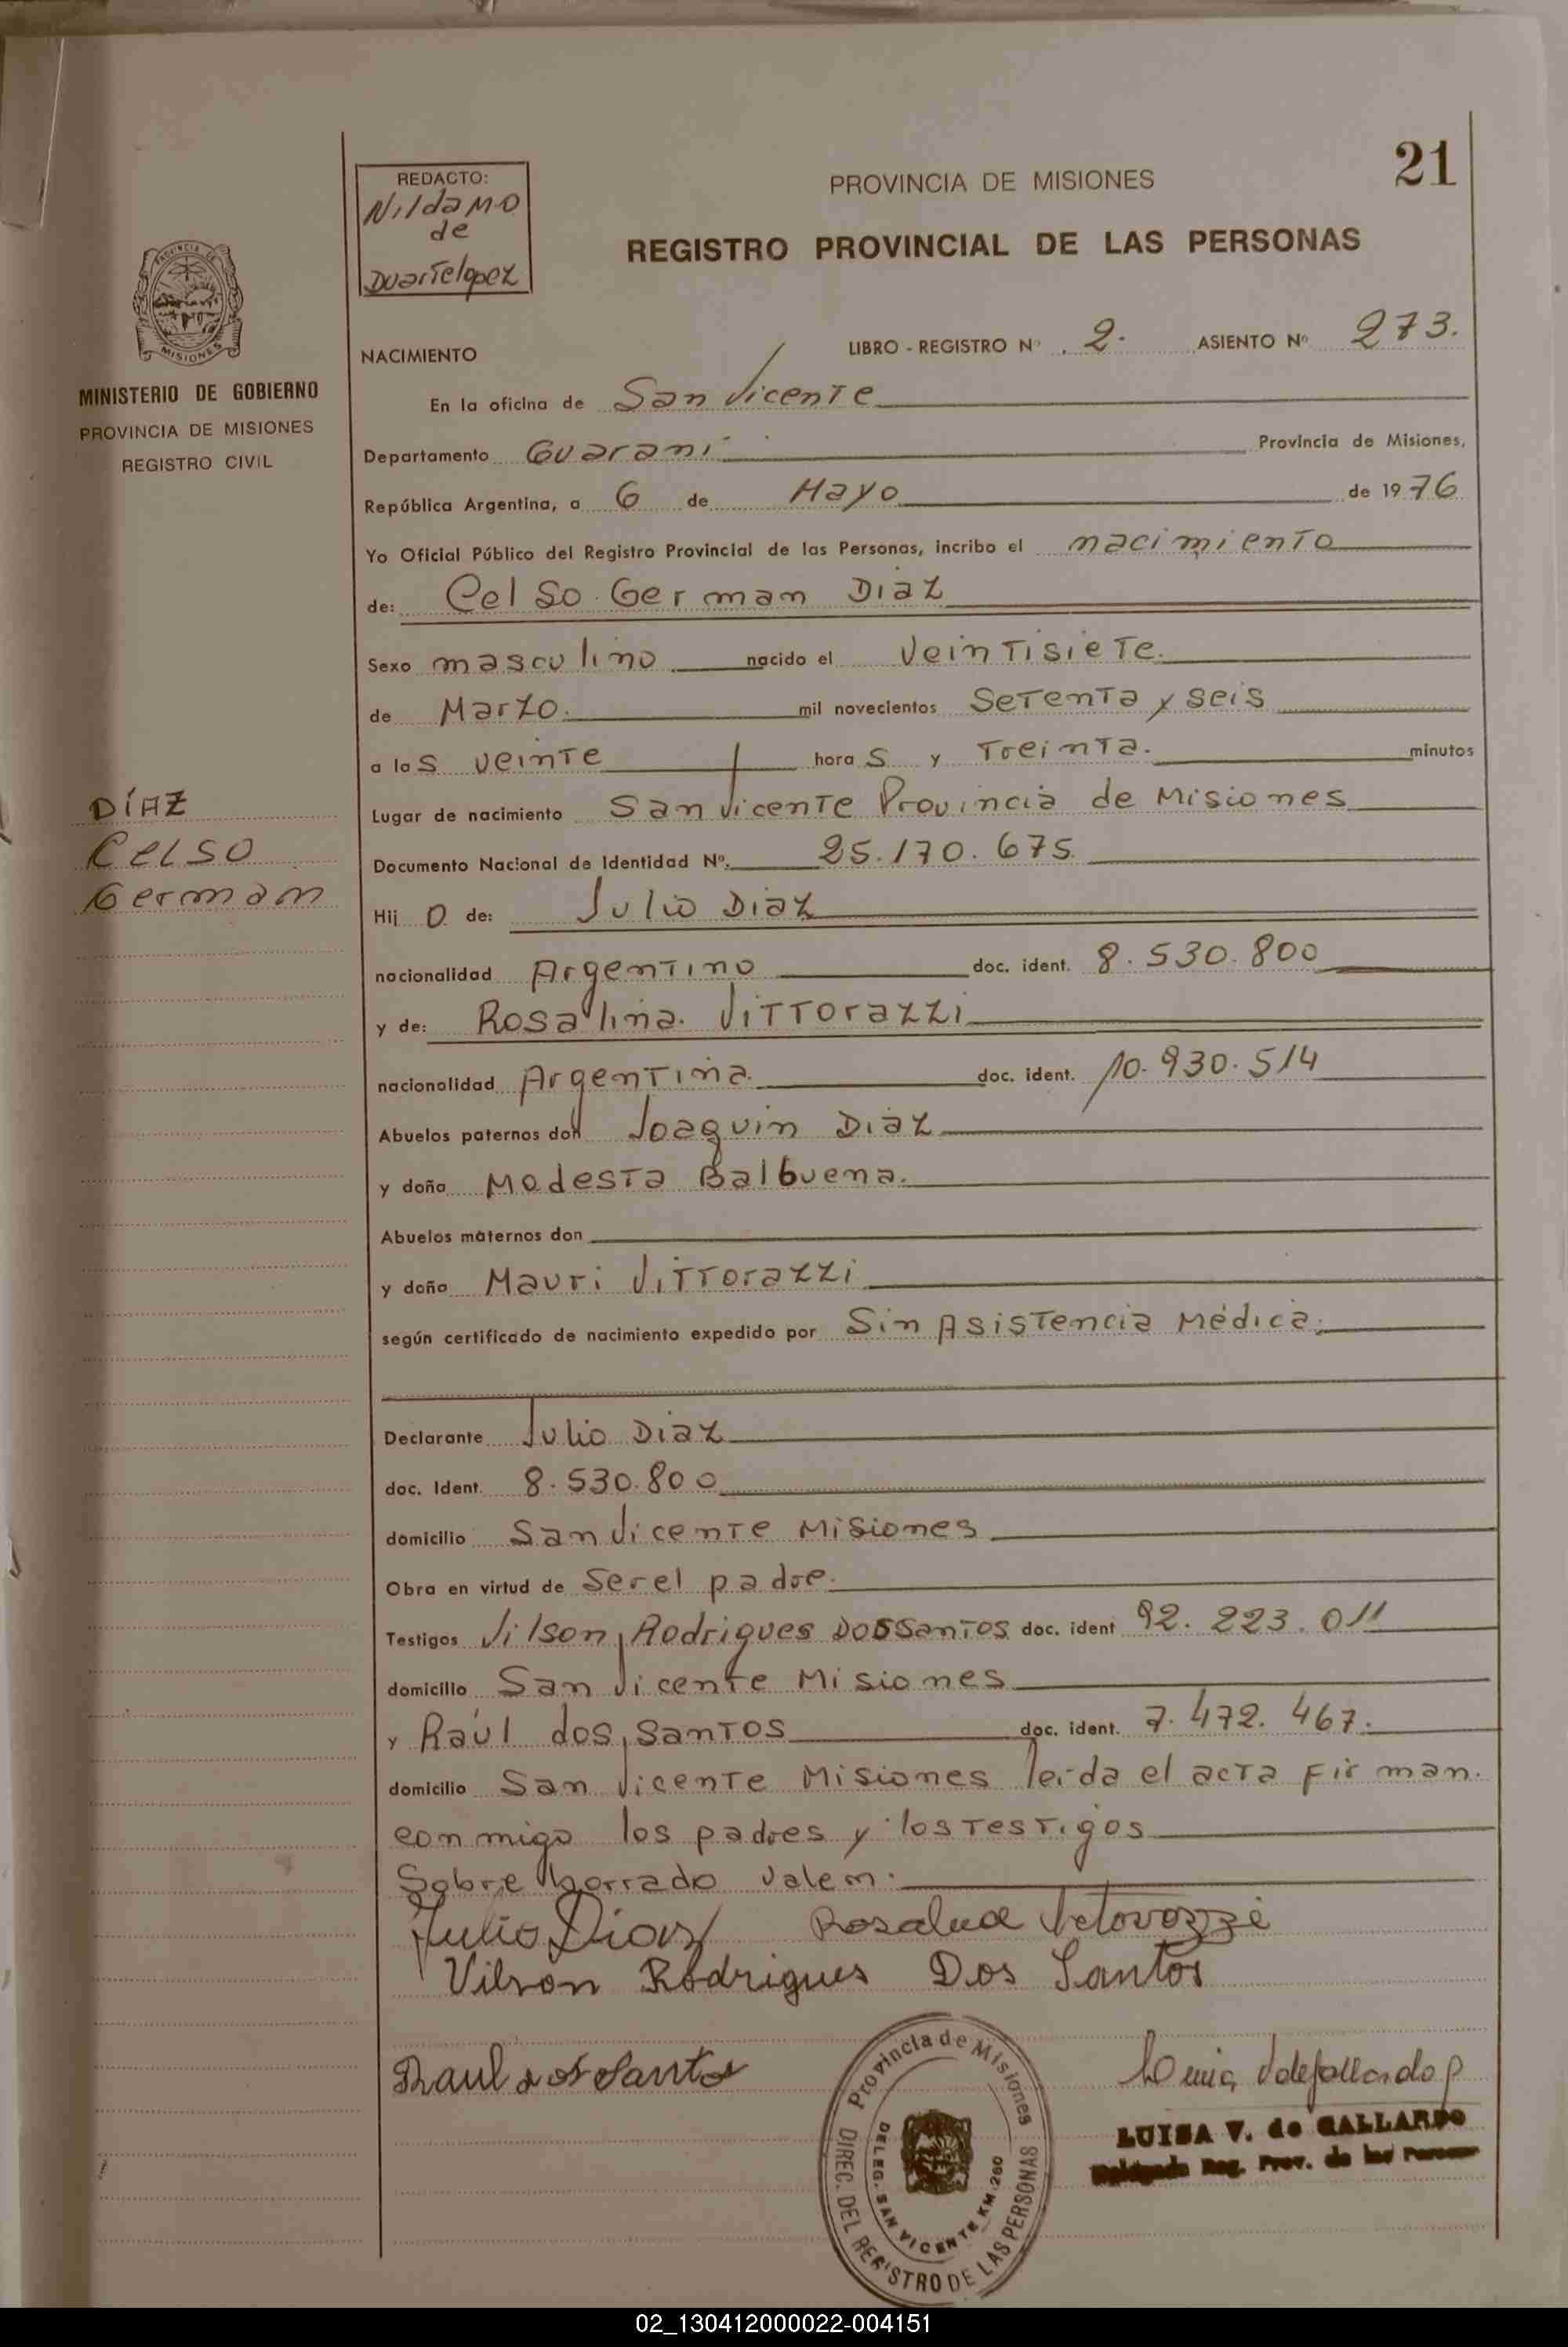 21
REDACTO:
Nilda M.O
de
Duartelopez
PROVINCIA DE MISIONES
REGISTRO PROVINCIAL DE LAS PERSONAS
PROVINCIA DE
MISIONES
MINISTERIO DE GOBIERNO
PROVINCIA DE MISIONES
REGISTRO CIVIL
NACIMIENTO LIBRO - REGISTRO Nº 2. ASIENTO Nº 273.
En la oficina de San Vicente
Departamento Guarani Provincia de Misiones,
República Argentina, a 6 de Mayo de 1976
Yo Oficial Público del Registro Provincial de las Personas, incribo el nacimiento
de: Celso German Diaz
Sexo masculino nacido el veintisiete.
de Marzo. mil novecientos Setenta y seis
a las veinte horas y Treinta. minutos
Lugar de nacimiento San Vicente Provincia de Misiones
DÍAZ
Celso
German
Documento Nacional de Identidad Nº. 25.170.675
Hijo de: Julio Diaz
nacionalidad Argentino doc. ident. 8.530.800
y de: Rosalina Vittorazzi
nacionalidad Argentina doc. ident. 10.930.514
Abuelos paternos don Joaquin Diaz
y doña Modesta Balbuena.
Abuelos maternos don
y doña Mauri Vittorazzi
según certificado de nacimiento expedido por Sin Asistencia Médica.
Declarante Julio Diaz
doc. Ident. 8.530.800
domicilio San Vicente Misiones
Obra en virtud de Ser el padre.
Testigos Vilson Rodrigues Dos Santos doc. ident 92.223.011
domicilio San Vicente Misiones
y Raúl dos Santos doc. ident. 7.472.467.
domicilio San Vicente Misiones leida el acta firman.
conmigo los padres y los testigos
Sobre borrado valen.
Julio Diaz Rosalina
Vilson Rodrigues Dos Santos
Raul dos Santos
Provincia de Misiones
DIREC. DEL REGISTRO DE LAS PERSONAS
DELEG. SAN VICENTE KM. 260
LUISA V. de GALLARDO
Delegada Reg. Prov. de las Personas
02_130412000022-004151